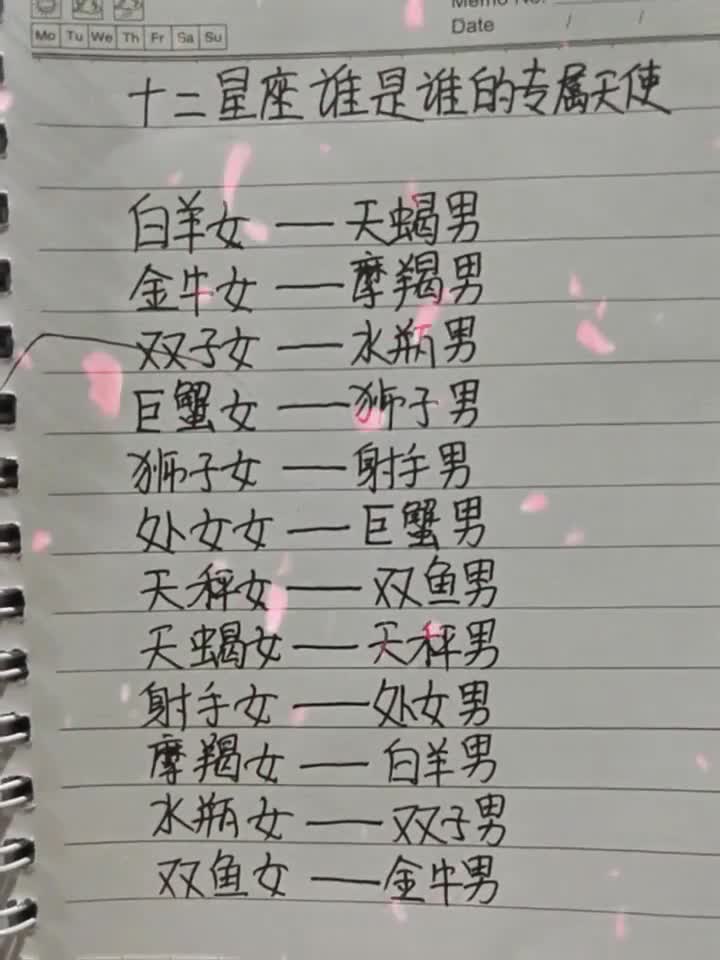 Memo No.
Mo Tu We Th Fr Sa Su
Date / /
十二星座谁是谁的专属天使
白羊女——天蝎男
金牛女——摩羯男
双子女——水瓶男
巨蟹女——狮子男
狮子女——射手男
处女女——巨蟹男
天秤女——双鱼男
天蝎女——天秤男
射手女——处女男
摩羯女——白羊男
水瓶女——双子男
双鱼女——金牛男